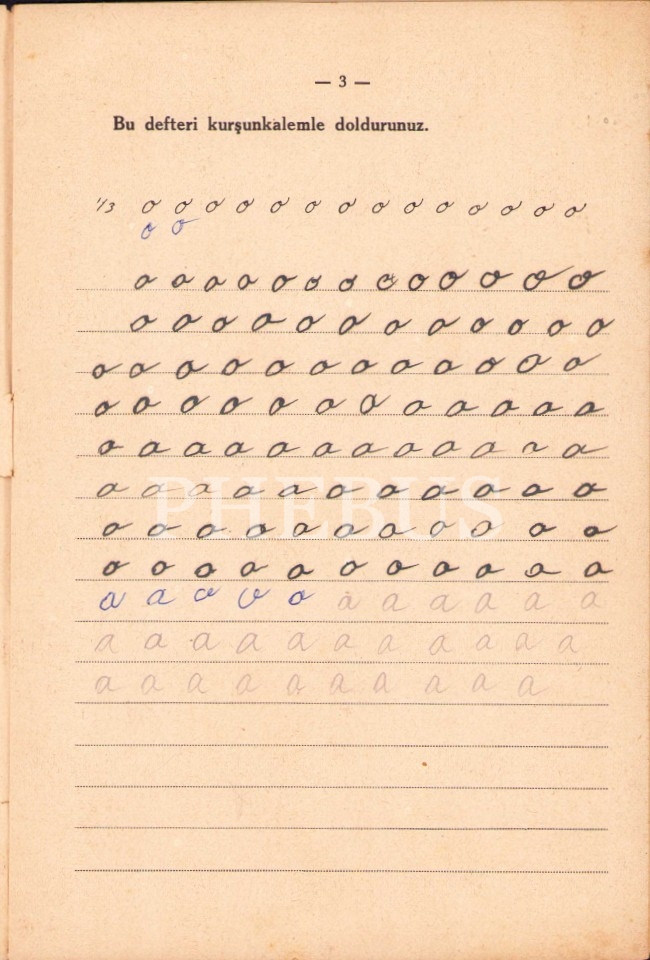 — 3 —
Bu defteri kurşunkalemle doldurunuz.
1/3 o o o o o o o o o o o o o o
o o
o o o o o o o o o o o o o
o o o o o o o o o o o o
o o o o o o o o o o o o
o o o o o o o o o o o o
o a a a a a a a a a a a
a a a a a a a a a a a a
o o o o o a a a a o o o
o o o o o o o o o o a a
a a o o o a a a a a a
a a a a a a a a a a a
a a a a a a a a a a
PHEBUS